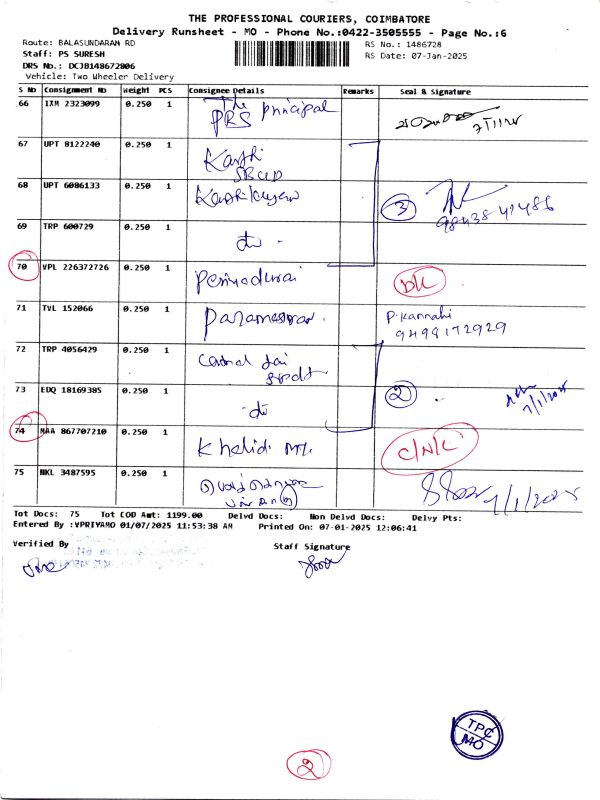 THE PROFESSIONAL COURIERS, COIMBATORE
Delivery Runsheet - MO - Phone No.:0422-3505555 - Page No.:6
Route: BALASUNDARAM RD
RS No.: 1486728
Staff: PS SURESH
RS Date: 07-Jan-2025
DRS No.: DCJB148672806
Vehicle: Two Wheeler Delivery
S No Consignment No Weight PCS Consignee Details Remarks Seal & Signature
66 IXM 2323099 0.250 1 The Principal
PRS
67 UPT 8122240 0.250 1
68 UPT 6086133 0.250 1
3
98438 41486
69 TRP 600729 0.250 1
70 VPL 226372726 0.250 1 Periyadurai DK
71 TVL 152066 0.250 1 Parameswar P. Kannahi
9498172929
72 TRP 4056429 0.250 1
73 EDQ 18169385 0.250 1 2
7/1/2025
74 MAA 867707210 0.250 1 Khalid C/N/C
75 NKL 3487595 0.250 1 7/1/2025
Tot Docs: 75 Tot COD Amt: 1199.00 Delvd Docs: Non Delvd Docs: Delvy Pts:
Entered By :VPRIYAMO 01/07/2025 11:53:38 AM Printed On: 07-01-2025 12:06:41
Verified By Staff Signature
TPC
MO
2